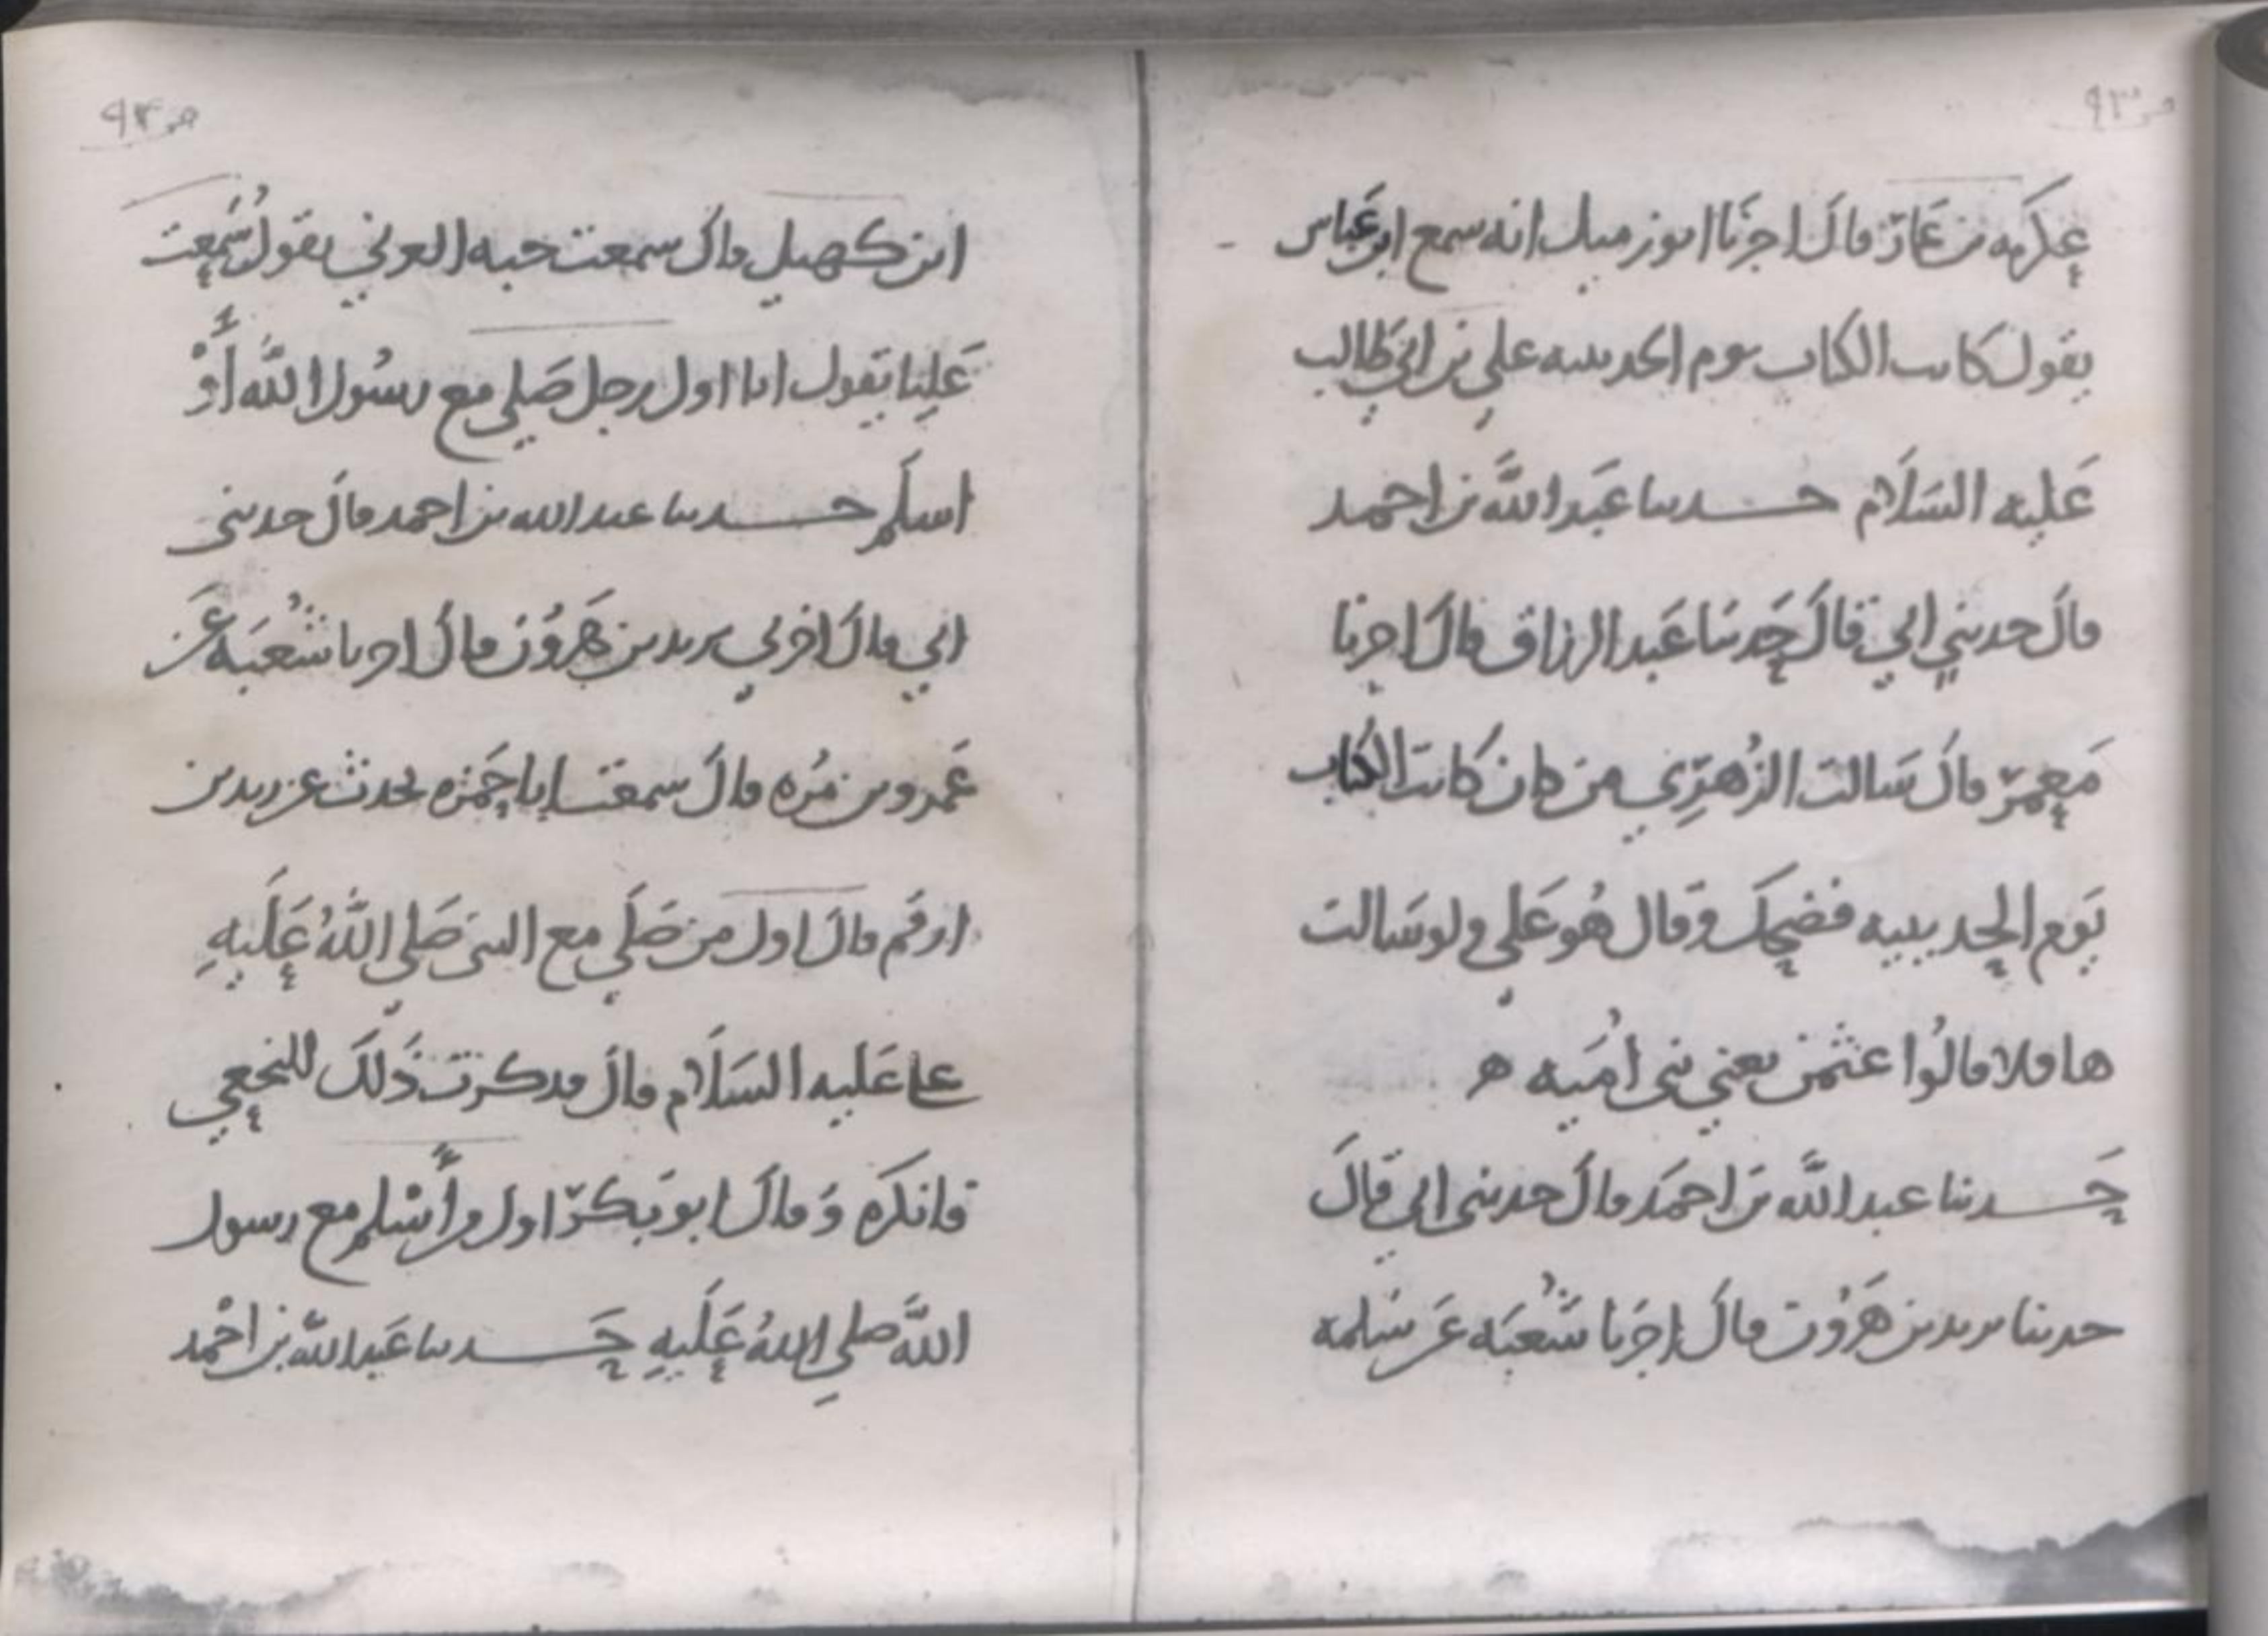 ص ٩٣
عِكرَمه بن عَمّار قال اخبرَنا ابو زميل انه سمع ابن عَباس
يقول كاتب الكتاب يوم الحديبيه علي بن ابي طالب
عَليه السَلَام حدثنا عَبد اللَّه بن احمد
قالَ حدثني ابي قالَ حَدثنا عَبد الرزاق قالَ اخبرنا
مَعمَر قالَ سَالت الزُهرِي من كان كاتب الكتاب
يَوم الحديبيه فضحِكَ وقال هُو عَلي ولو سَالت
ها ولا قالُوا عثمن يعني بني اُميَه ه
حَدثنا عبد اللَّه بن احمَد قالَ حدثني ابي قالَ
حدثنا يزيد بن هَرُون قالَ اخبرَنا شُعبَه عَن سَلمه
ص ٩٤
ابن كهيل قالَ سمعت حبه العرني يقول سَمعت
عَليا يَقول انا اول رجل صَلي مع رسُول اللَّه أَوْ
اسلَم حدثنا عبد الله بن احمد قالَ حدثني
ابي قالَ اخبرني يزيد بن هَرُون قالَ اخبرنا شُعبَه عَن
عَمرو بن مُره قالَ سمعت ابا حَمزه يحدث عن زيد بن
ارقَم قالَ اول من صَلَي مع النبي صَلي اللَّهُ عَلَيهِ
علي عَليه السَلَام قالَ فدكرت ذَلكَ للنخعِي
فانكرَه وَقالَ ابو بَكر اول من أَسْلم مع رسول
اللَّه صلي اللهُ عَلَيهِ حَدثنا عَبد اللَّه بن احْمد